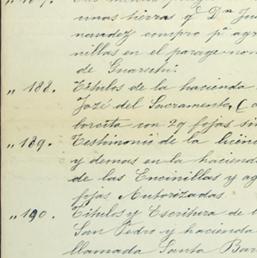 unas tierras y Dn Jua
navadez compro pa agre
nillas en el parage nom
de Guarichi.
" 188. Titulos de la hacienda
José del Sacramento, (a
loraita con 29 fojas sin
" 189. Testimonio de la licin
y demas en la hacienda
de las Encinillas y ag
fojas Autorizadas.
" 190. Titulos y Escritura de t
San Pedro y hacienda
llamada Santa Bar